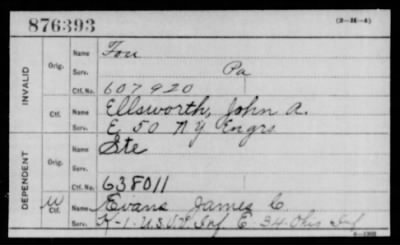 876393
(3-H-4)
INVALID
Orig.
Name Fou
Serv. Pa
Ctf. No. 607920
Ctf. Name Ellsworth, John A.
Serv. E 50 N Y Engrs
DEPENDENT
Orig.
Name Ste
Serv.
Ctf. No. 638011
W Ctf.
Name Evans James C
Serv. K-1-U.S.V.V. Inf E. 34 Ohio Inf